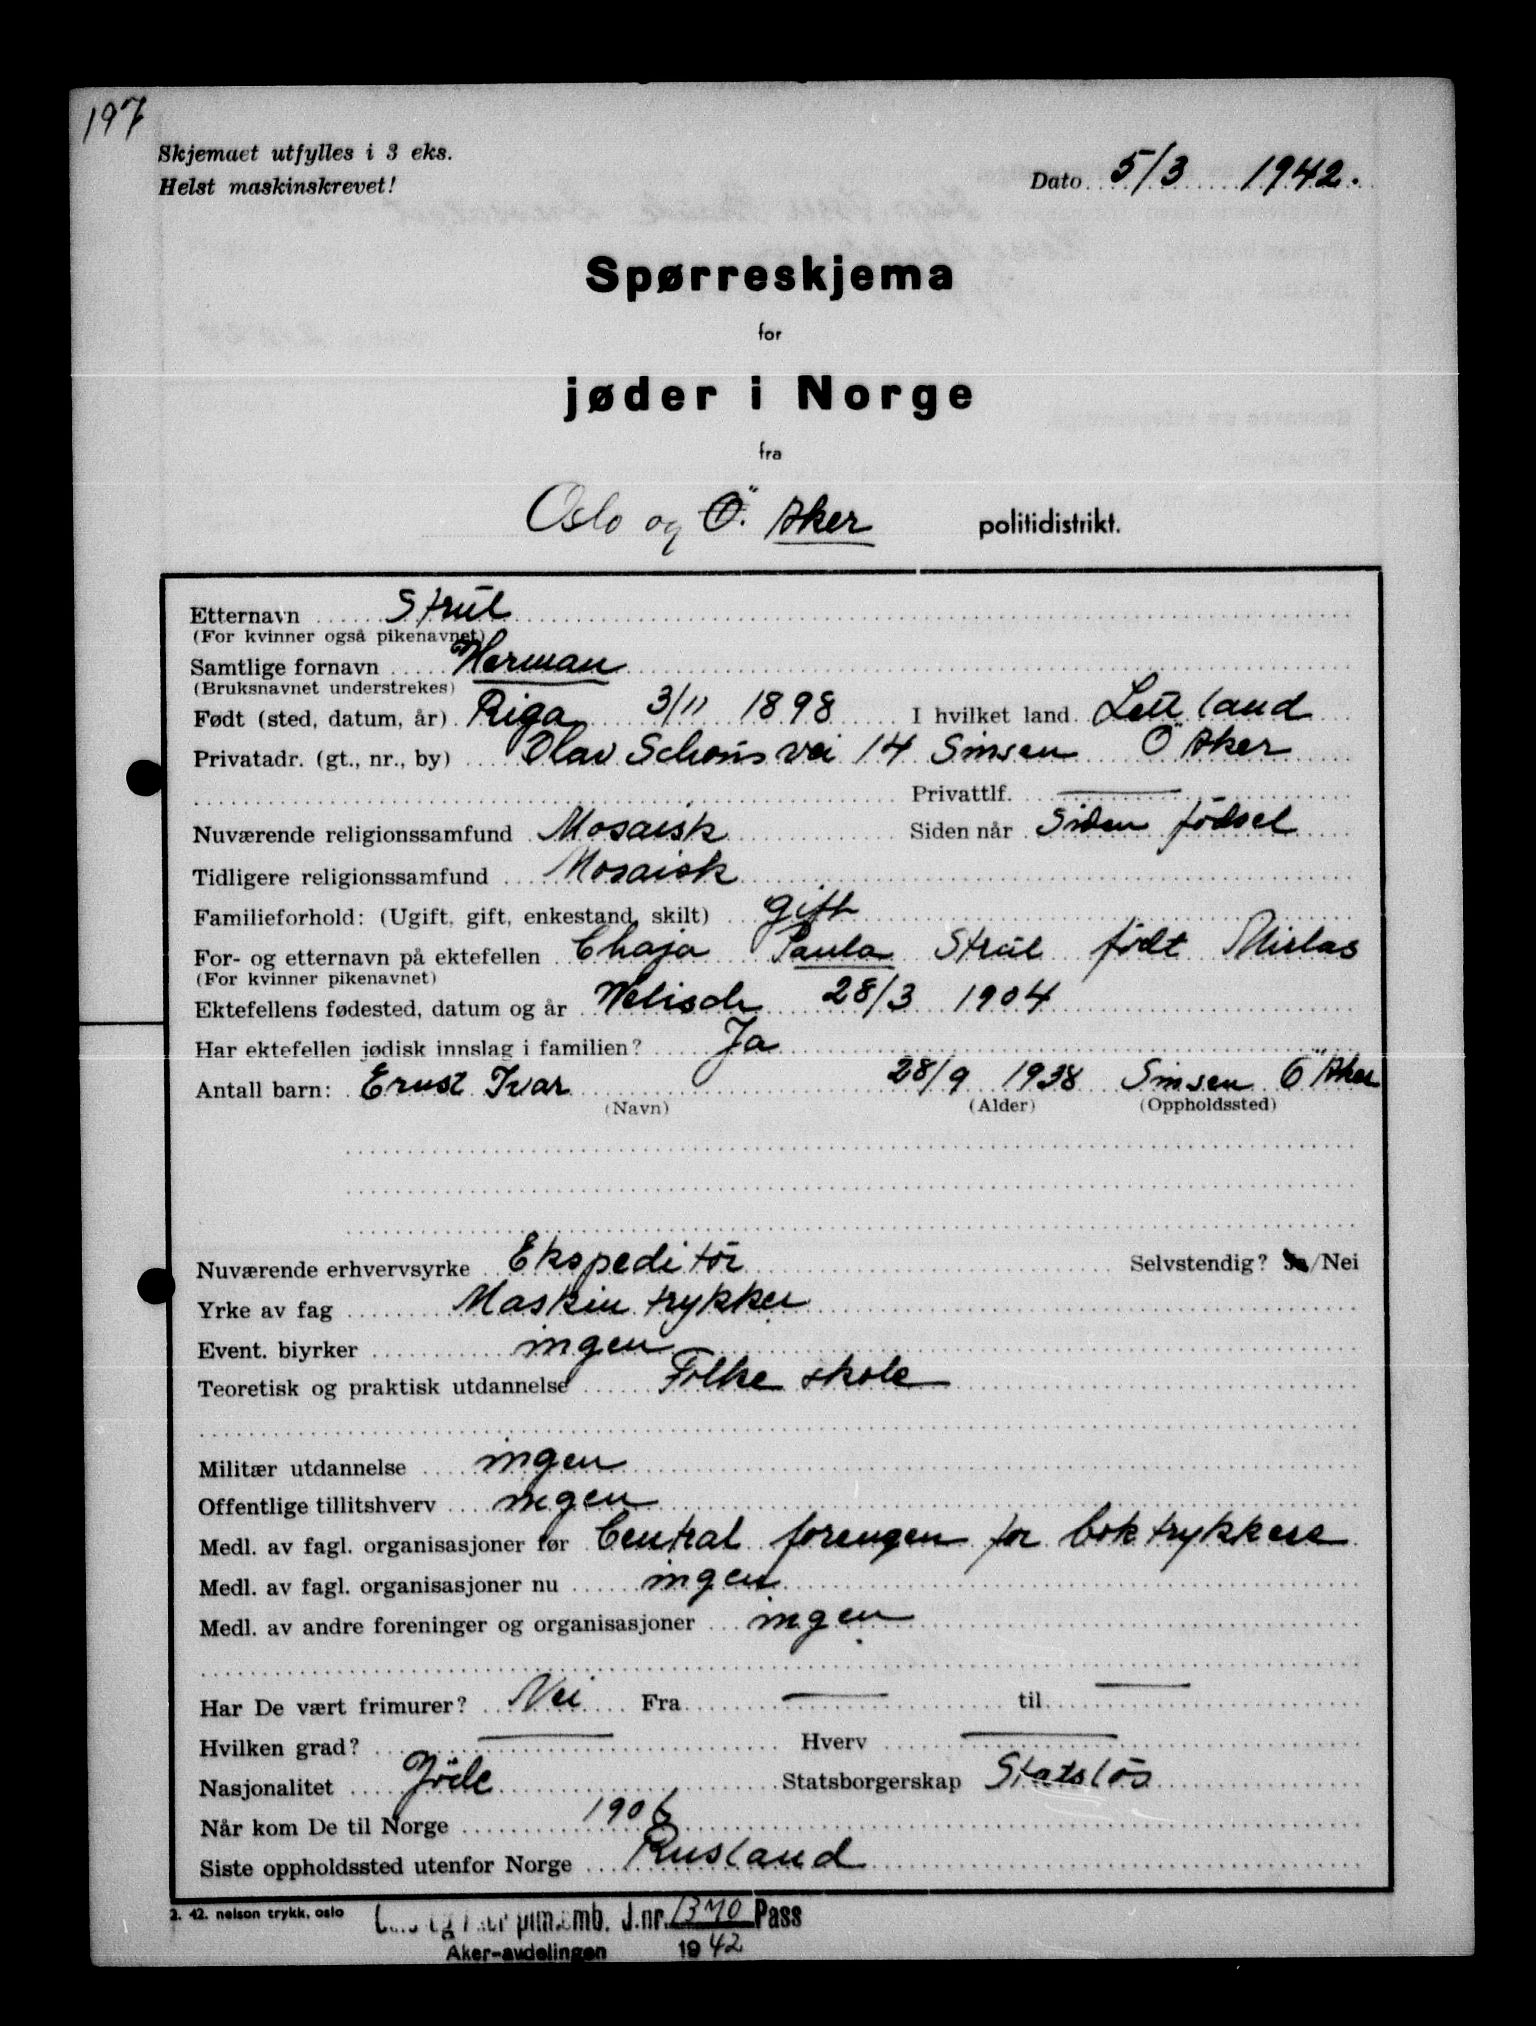 197
Skjemaet utfylles i 3 eks.
Helst maskinskrevet!
Dato 5/3 1942.
Spørreskjema
for
jøder i Norge
fra
Oslo og Ö. Aker politidistrikt.
Etternavn Strul
(For kvinner også pikenavnet)
Samtlige fornavn Herman
(Bruksnavnet understrekes)
Født (sted, datum, år) Riga 3/11 1898 I hvilket land Lettland
Privatadr. (gt., nr., by) Olav Schous vei 14 Sinsen Ö Aker
Privattlf.
Nuværende religionssamfund Mosaisk Siden når Siden födsel
Tidligere religionssamfund Mosaisk
Familieforhold: (Ugift, gift, enkestand, skilt) gift
For- og etternavn på ektefellen Chaja Paula Strul födt Mirlas
(For kvinner pikenavnet)
Ektefellens fødested, datum og år Welisch 28/3 1904
Har ektefellen jødisk innslag i familien? Ja
Antall barn: Ernst Ivar 28/9 1938 Sinsen Ö Aker
(Navn) (Alder) (Oppholdssted)
Nuværende erhvervsyrke Ekspeditör Selvstendig? Ja/Nei
Yrke av fag Maskin trykker
Event. biyrker ingen
Teoretisk og praktisk utdannelse Folke skole
Militær utdannelse ingen
Offentlige tillitshverv ingen
Medl. av fagl. organisasjoner før Central forengen for boktrykkere
Medl. av fagl. organisasjoner nu ingen
Medl. av andre foreninger og organisasjoner ingen
Har De vært frimurer? Nei Fra til
Hvilken grad? Hverv
Nasjonalitet Jöde Statsborgerskap Statslös
Når kom De til Norge 1906
Siste oppholdssted utenfor Norge Rusland
2. 42. nelson trykk, oslo
J.nr. 1370 Pass
Aker-avdelingen 1942